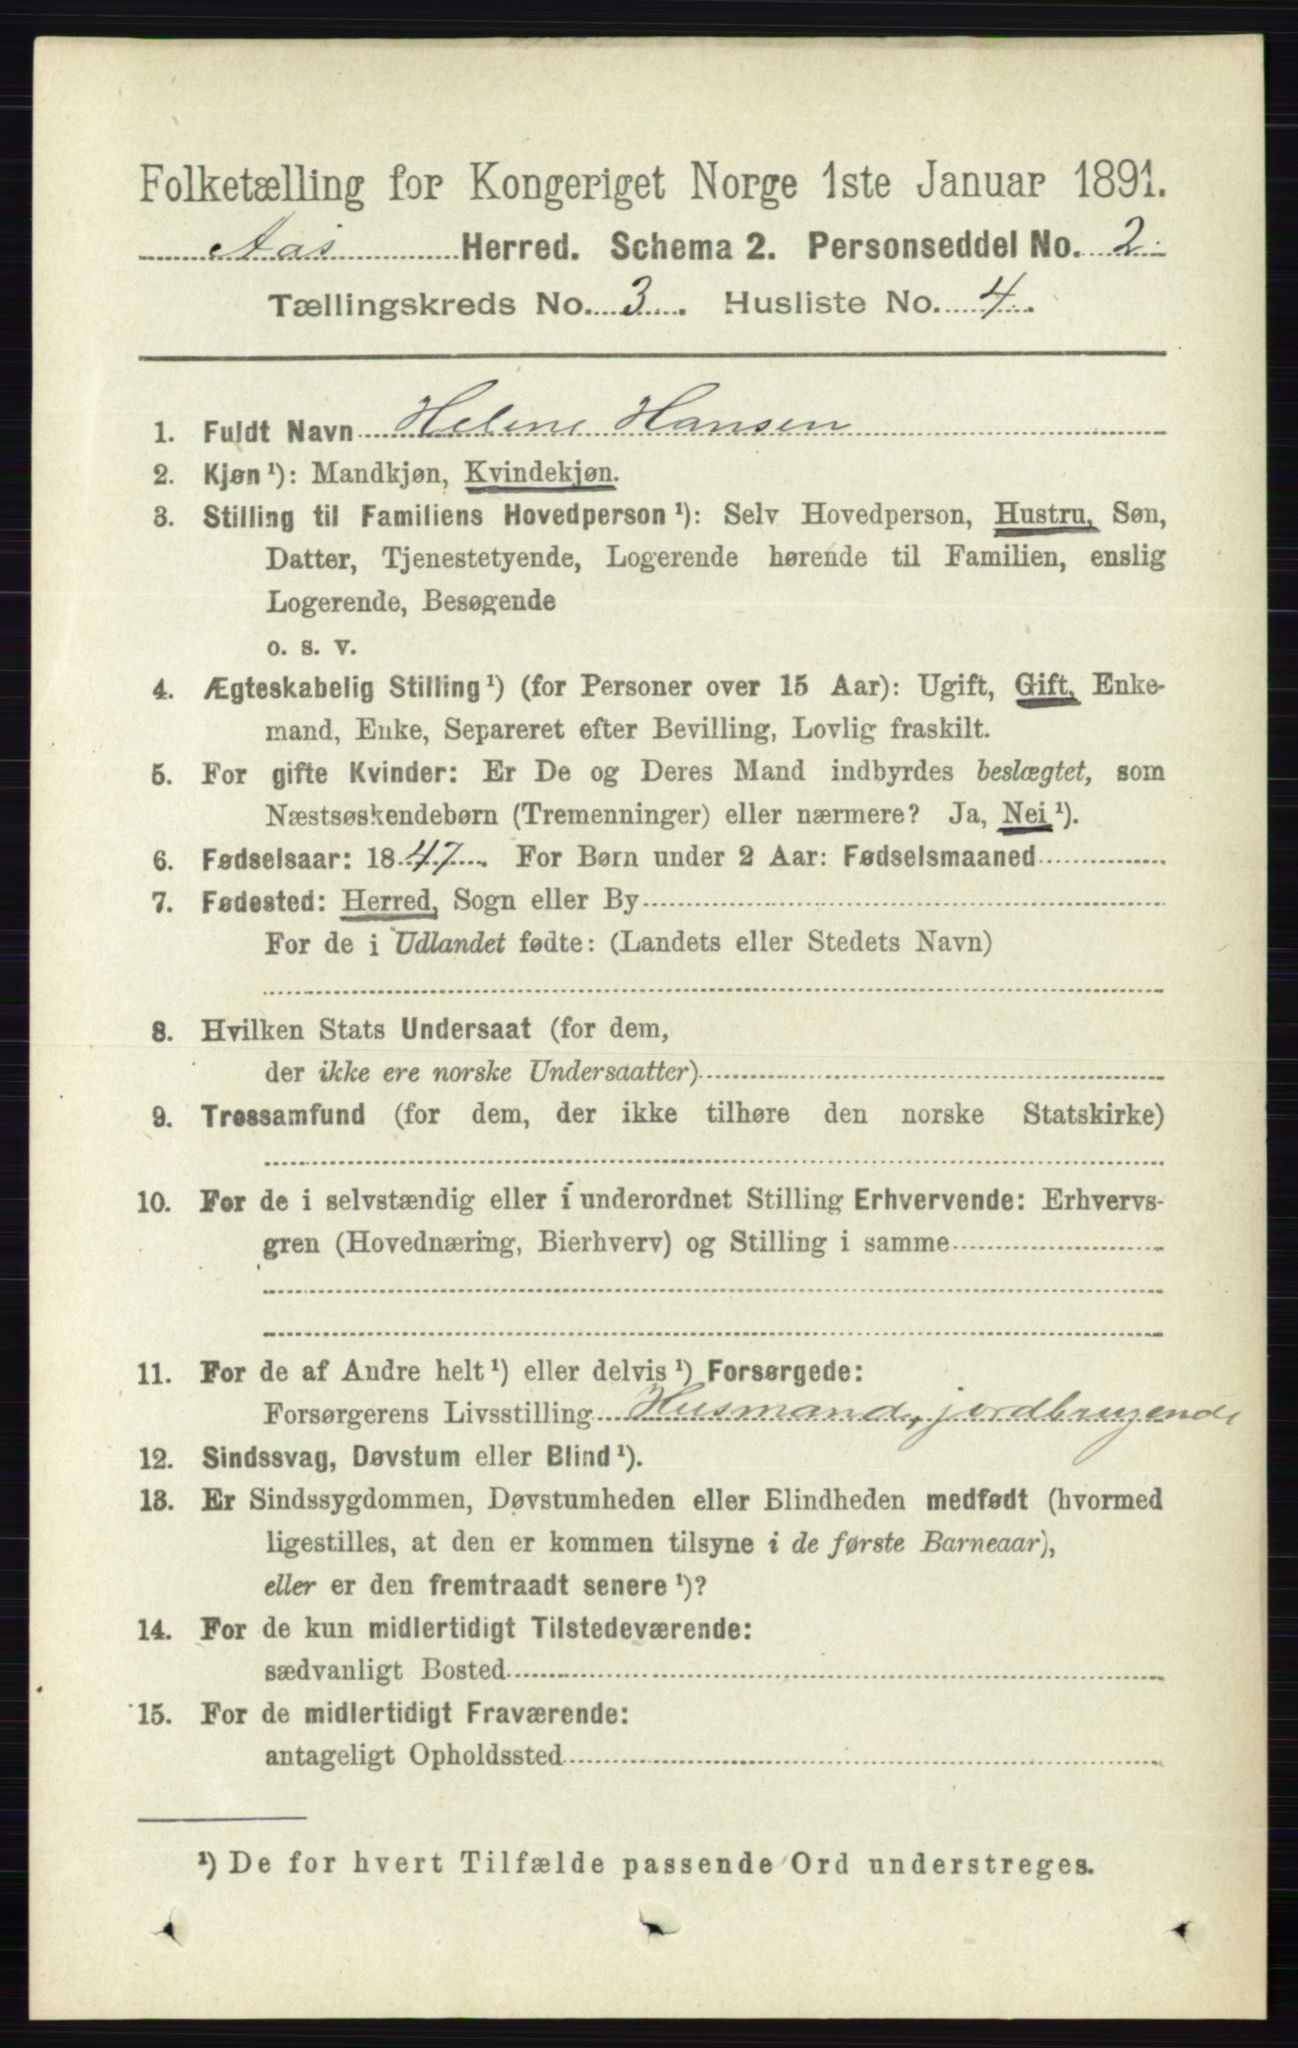 Folketælling for Kongeriget Norge 1ste Januar 1891.
Aas Herred. Schema 2. Personseddel No. 2
Tællingskreds No. 3. Husliste No. 4.
1. Fuldt Navn Helene Hansen
2. Kjøn¹): Mandkjøn, Kvindekjøn.
3. Stilling til Familiens Hovedperson¹): Selv Hovedperson, Hustru, Søn,
Datter, Tjenestetyende, Logerende hørende til Familien, enslig
Logerende, Besøgende
o. s. v.
4. Ægteskabelig Stilling¹) (for Personer over 15 Aar): Ugift, Gift, Enke-
mand, Enke, Separeret efter Bevilling, Lovlig fraskilt.
5. For gifte Kvinder: Er De og Deres Mand indbyrdes beslægtet, som
Næstsøskendebørn (Tremenninger) eller nærmere? Ja, Nei¹).
6. Fødselsaar: 1847. For Børn under 2 Aar: Fødselsmaaned
7. Fødested: Herred, Sogn eller By
For de i Udlandet fødte: (Landets eller Stedets Navn)
8. Hvilken Stats Undersaat (for dem,
der ikke ere norske Undersaatter)
9. Trossamfund (for dem, der ikke tilhøre den norske Statskirke)
10. For de i selvstændig eller i underordnet Stilling Erhvervende: Erhvervs-
gren (Hovednæring, Bierhverv) og Stilling i samme
11. For de af Andre helt¹) eller delvis¹) Forsørgede:
Forsørgerens Livsstilling Husmand, jordbrugende
12. Sindssvag, Døvstum eller Blind¹).
13. Er Sindssygdommen, Døvstumheden eller Blindheden medfødt (hvormed
ligestilles, at den er kommen tilsyne i de første Barneaar),
eller er den fremtraadt senere¹)?
14. For de kun midlertidigt Tilstedeværende:
sædvanligt Bosted
15. For de midlertidigt Fraværende:
antageligt Opholdssted
¹) De for hvert Tilfælde passende Ord understreges.